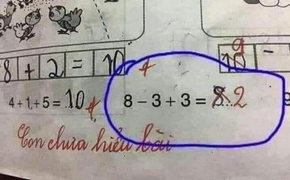 8 + 2 = 10
10 9 -
4 + 1 + 5 = 10
8 - 3 + 3 = 8 2
Con chưa hiểu bài